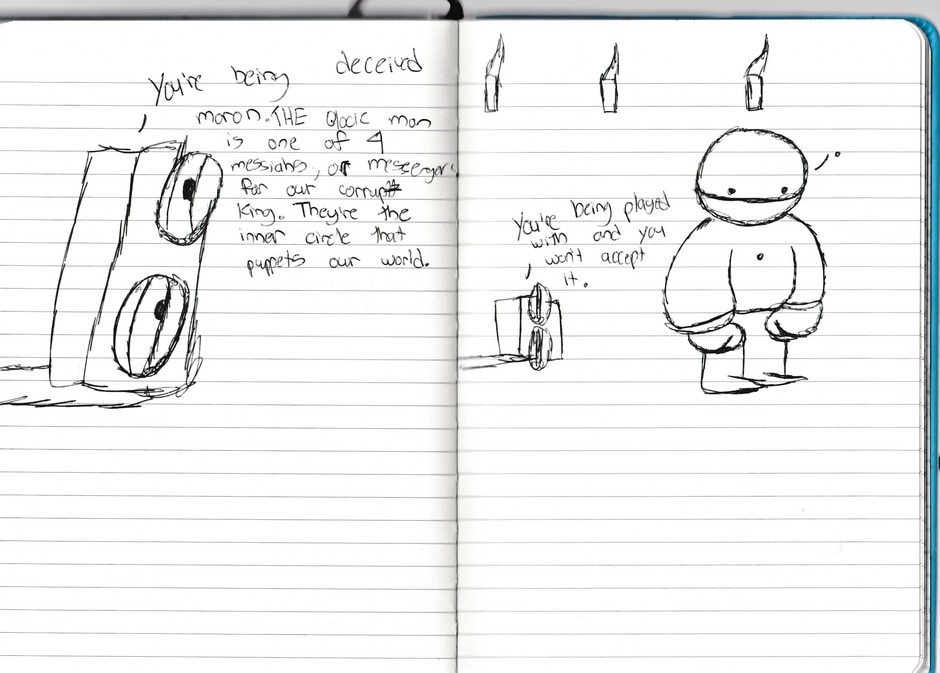 You're being deceived
moron. THE man
is one of 4
messiahs, or messengers
for our corrupt
King. They're the
inner circle that
puppets our world.
You're being played
with and you
won't accept
it.